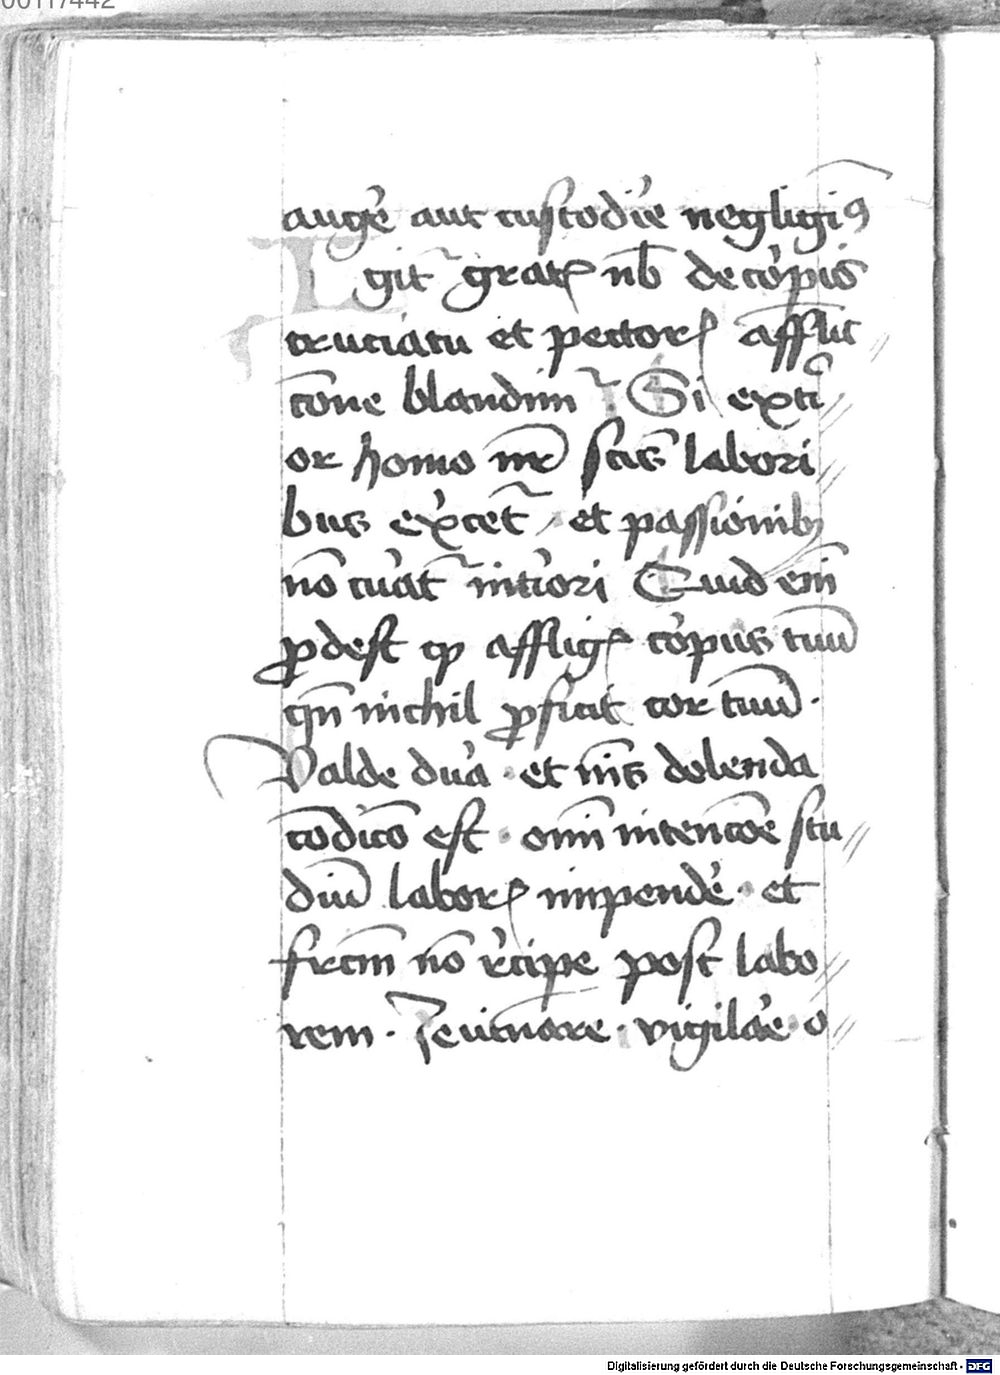 00117442
augẽ aut custodĩe negligimꝰ
Igit̃ gratꝭ nb̃ de cõpis
cruciatu et pectorꝭ afflic
cõne blandim̃ Si exti
or homo nr̃ scĩs labori
bus ex̃cet̃ et passionibꝫ
nõ cũat̃ intĩori Quid em̃
ꝓdest qꝫ affligꝭ cõpus tuũ
qñ nichil ꝓficit cor tuũ ·
Valde dũa · et nĩs dolenda
cõdicõ est · omñ intencõe stu
diũ laborꝭ impendẽ · et
frctm̃ nõ r̃cipe post labo
rem · Jeiũnare · vigilãe · o
Digitalisierung gefördert durch die Deutsche Forschungsgemeinschaft - DFG